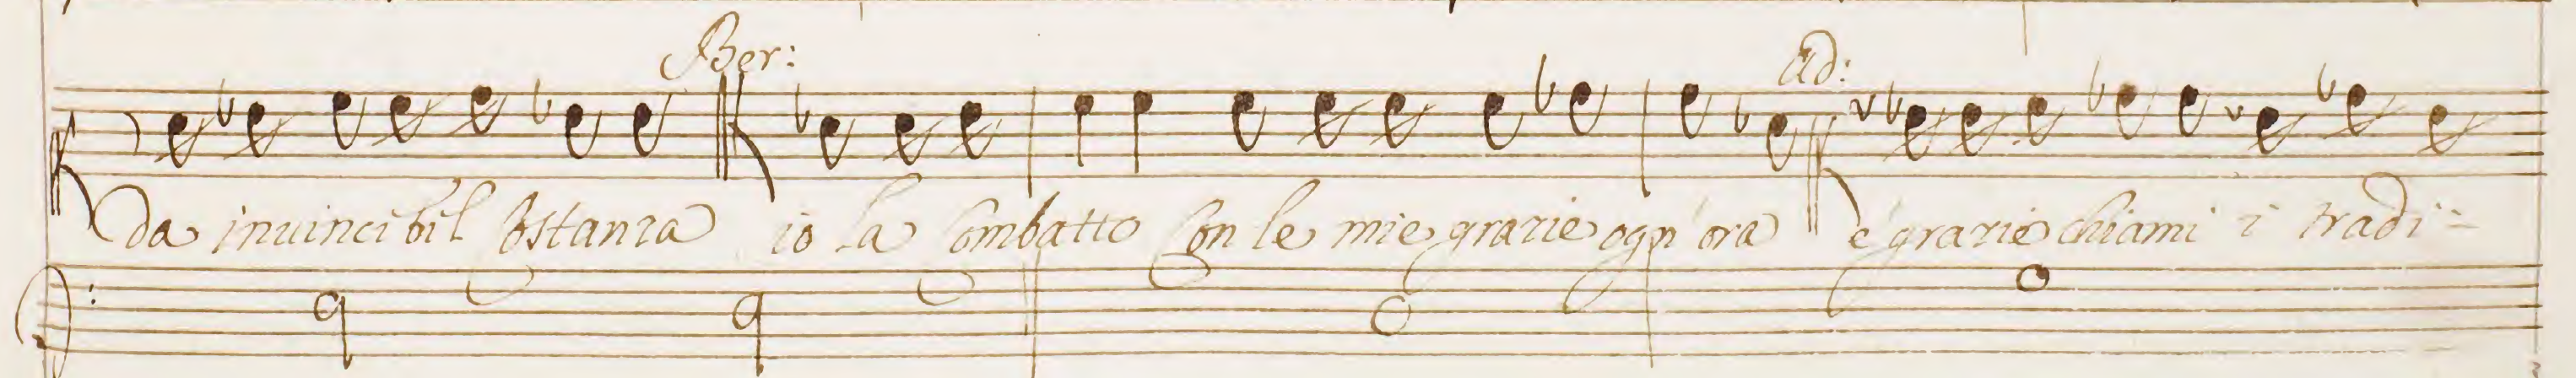 Ber: Ad:
da inuincibil Costanza io la Combatto Con le mie grazie ogn'ora e grazie chiami i tradi-